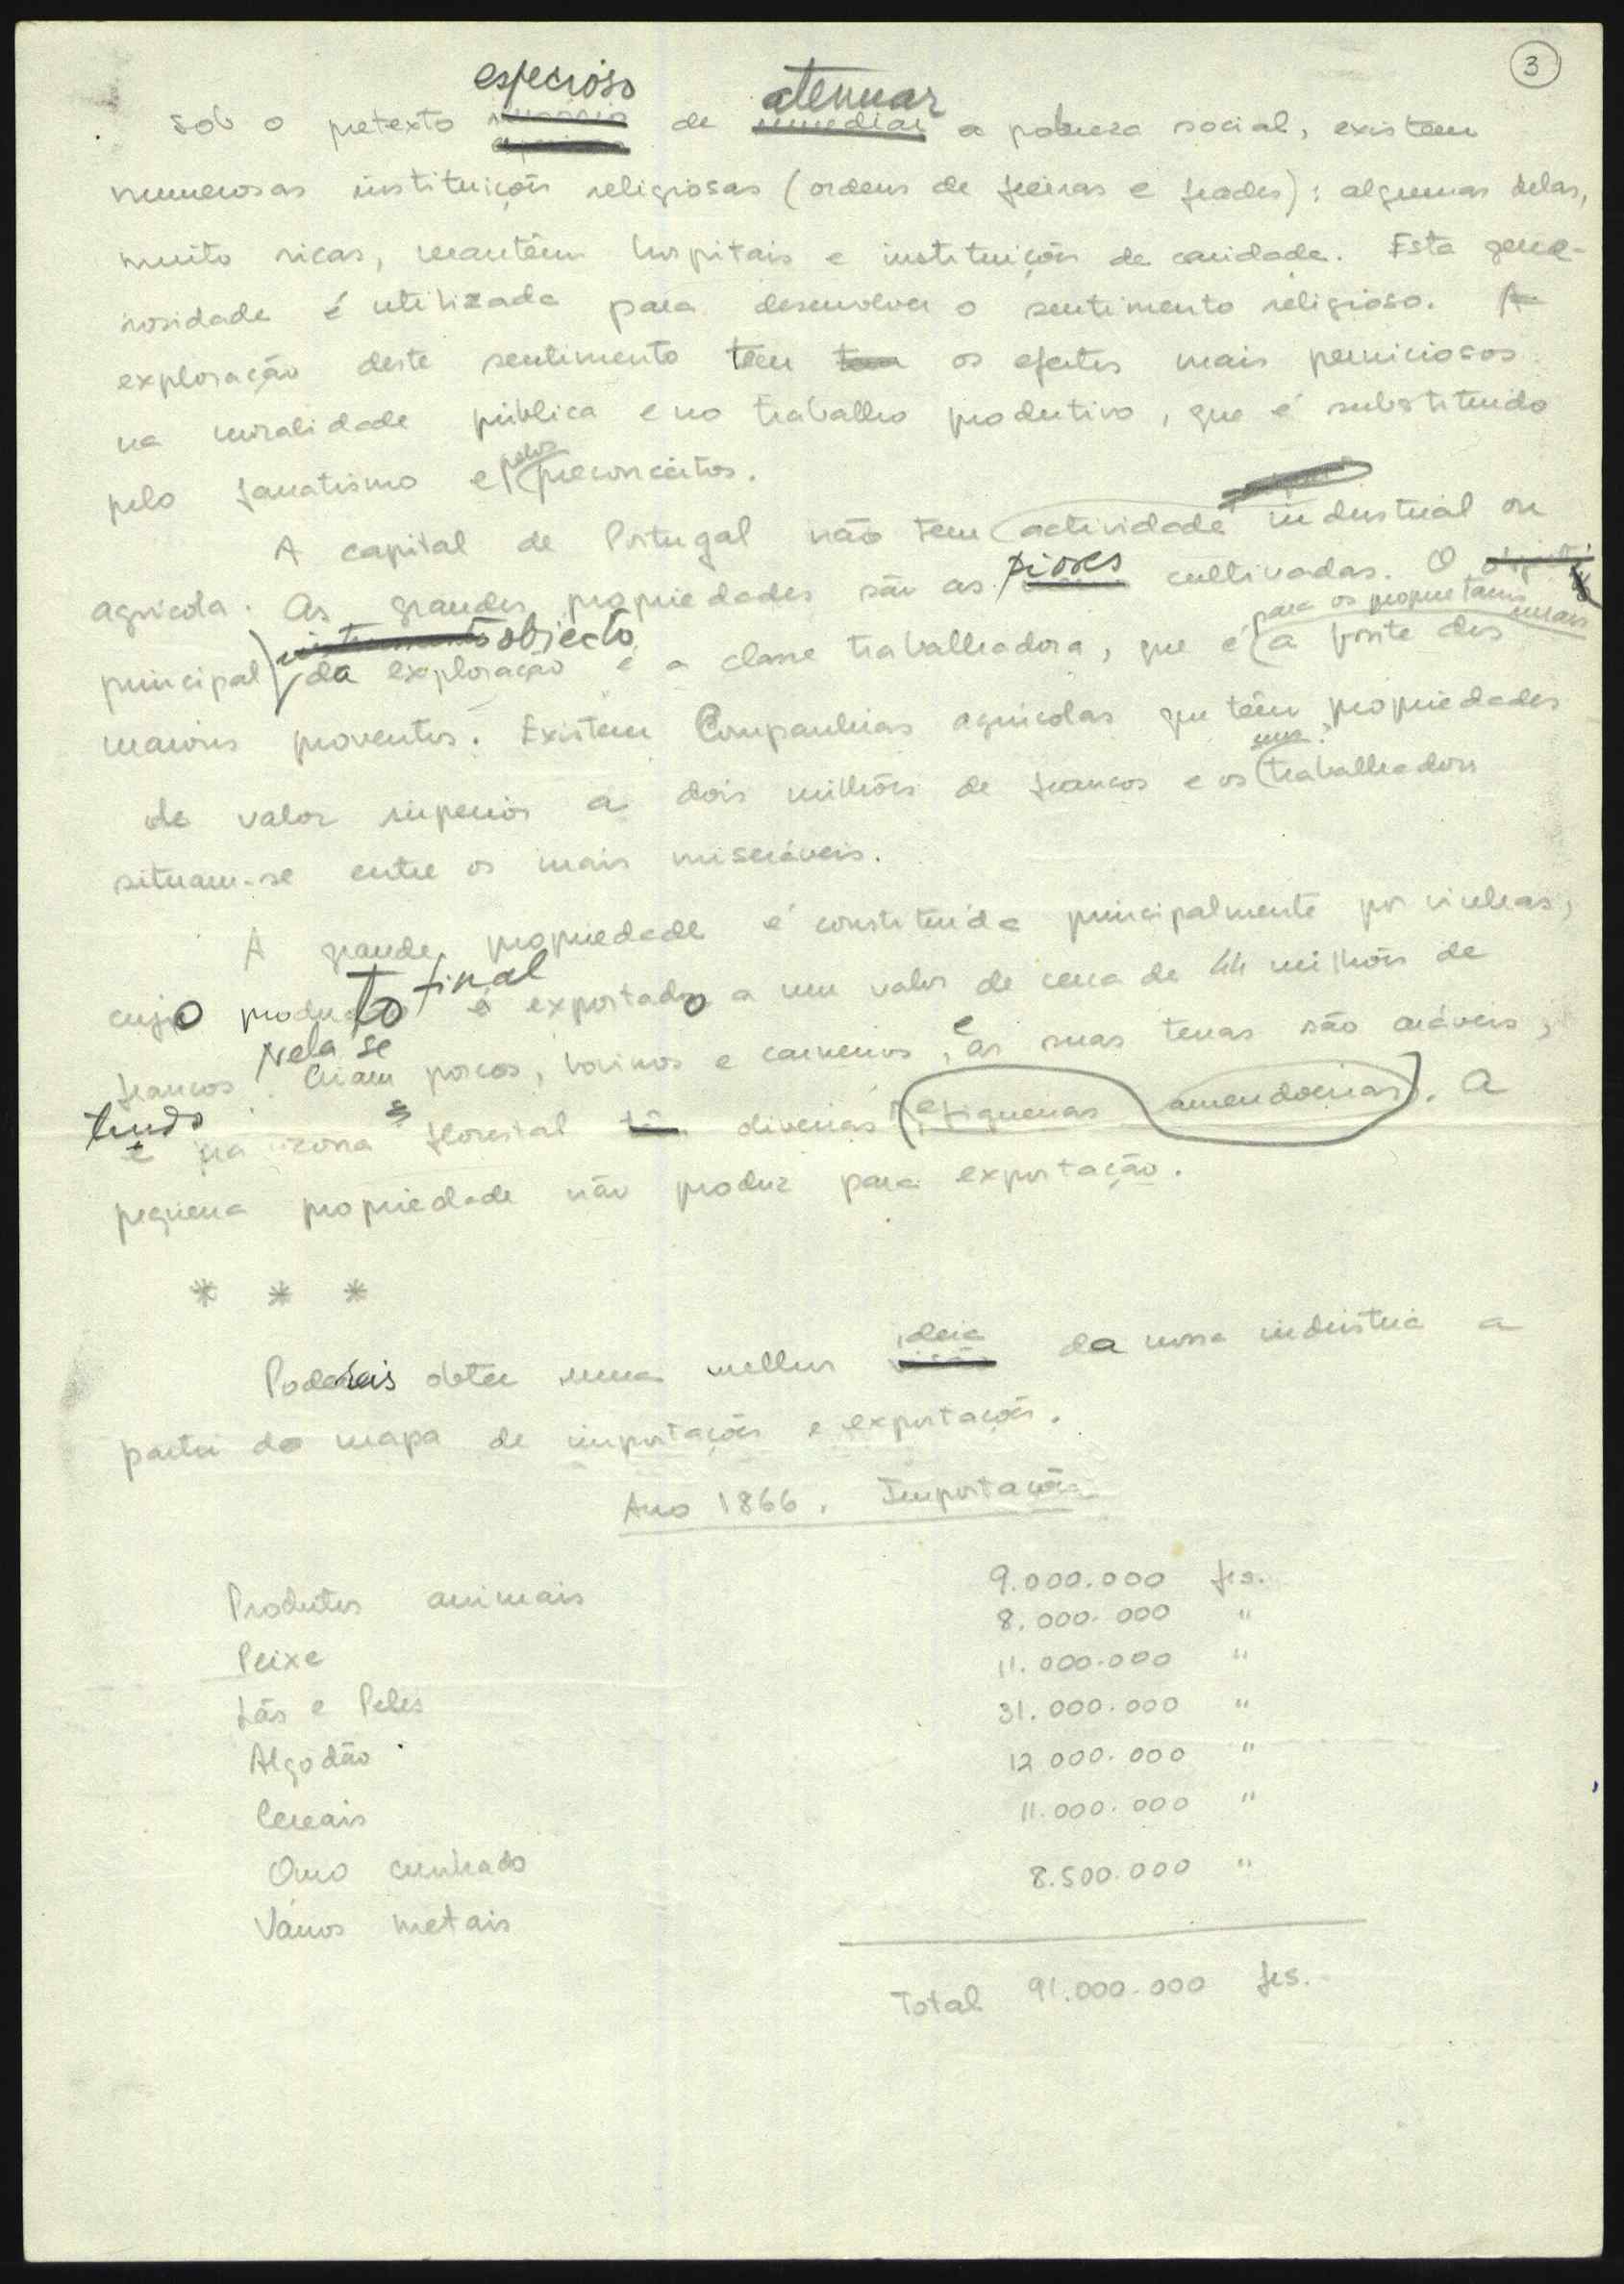 3
especioso atenuar
sob o pretexto de remediar a pobreza social, existem
numerosas instituições religiosas (ordens de freiras e frades): algumas delas,
muito ricas, mantêm hospitais e instituições de caridade. Esta gene-
rosidade é utilizada para desenvolver o sentimento religioso. A
exploração deste sentimento tem tem os efeitos mais perniciosos
na moralidade pública e no trabalho produtivo, que é substituido
pelos
pelo fanatismo e preconceitos.
A capital de Portugal não tem actividade industrial ou
agricola. As grandes propriedades são as piores cultivadas. O
para os proprietários
objecto rurais
principal da exploração é a classe trabalhadora, que é a fonte dos
maiores proventos. Existem Companhias agricolas que têm propriedades
seus
de valor superior a dois milhões de francos e os trabalhadores
situam-se entre os mais miseráveis.
A grande propriedade é constituida principalmente por vinhas,
final
cujo producto é exportado a um valor de cerca de 44 milhões de
Nela se e
francos. Criam porcos, bovinos e carneiros, as suas terras são aráveis,
tendo s
e na zona florestal diversas figueiras amendoeiras. A
pequena propriedade não produz para exportação.
* * *
ideia
Podereis obter uma melhor da nossa indústria a
partir do mapa de importações e exportações.
Ano 1866. Importações
Produtos animais 9.000.000 fcs.
Peixe 8.000.000 "
Lãs e Peles 11.000.000 "
Algodão 31.000.000 "
Cereais 12.000.000 "
Ouro cunhado 11.000.000 "
Vários metais 8.500.000 "
Total 91.000.000 fcs.